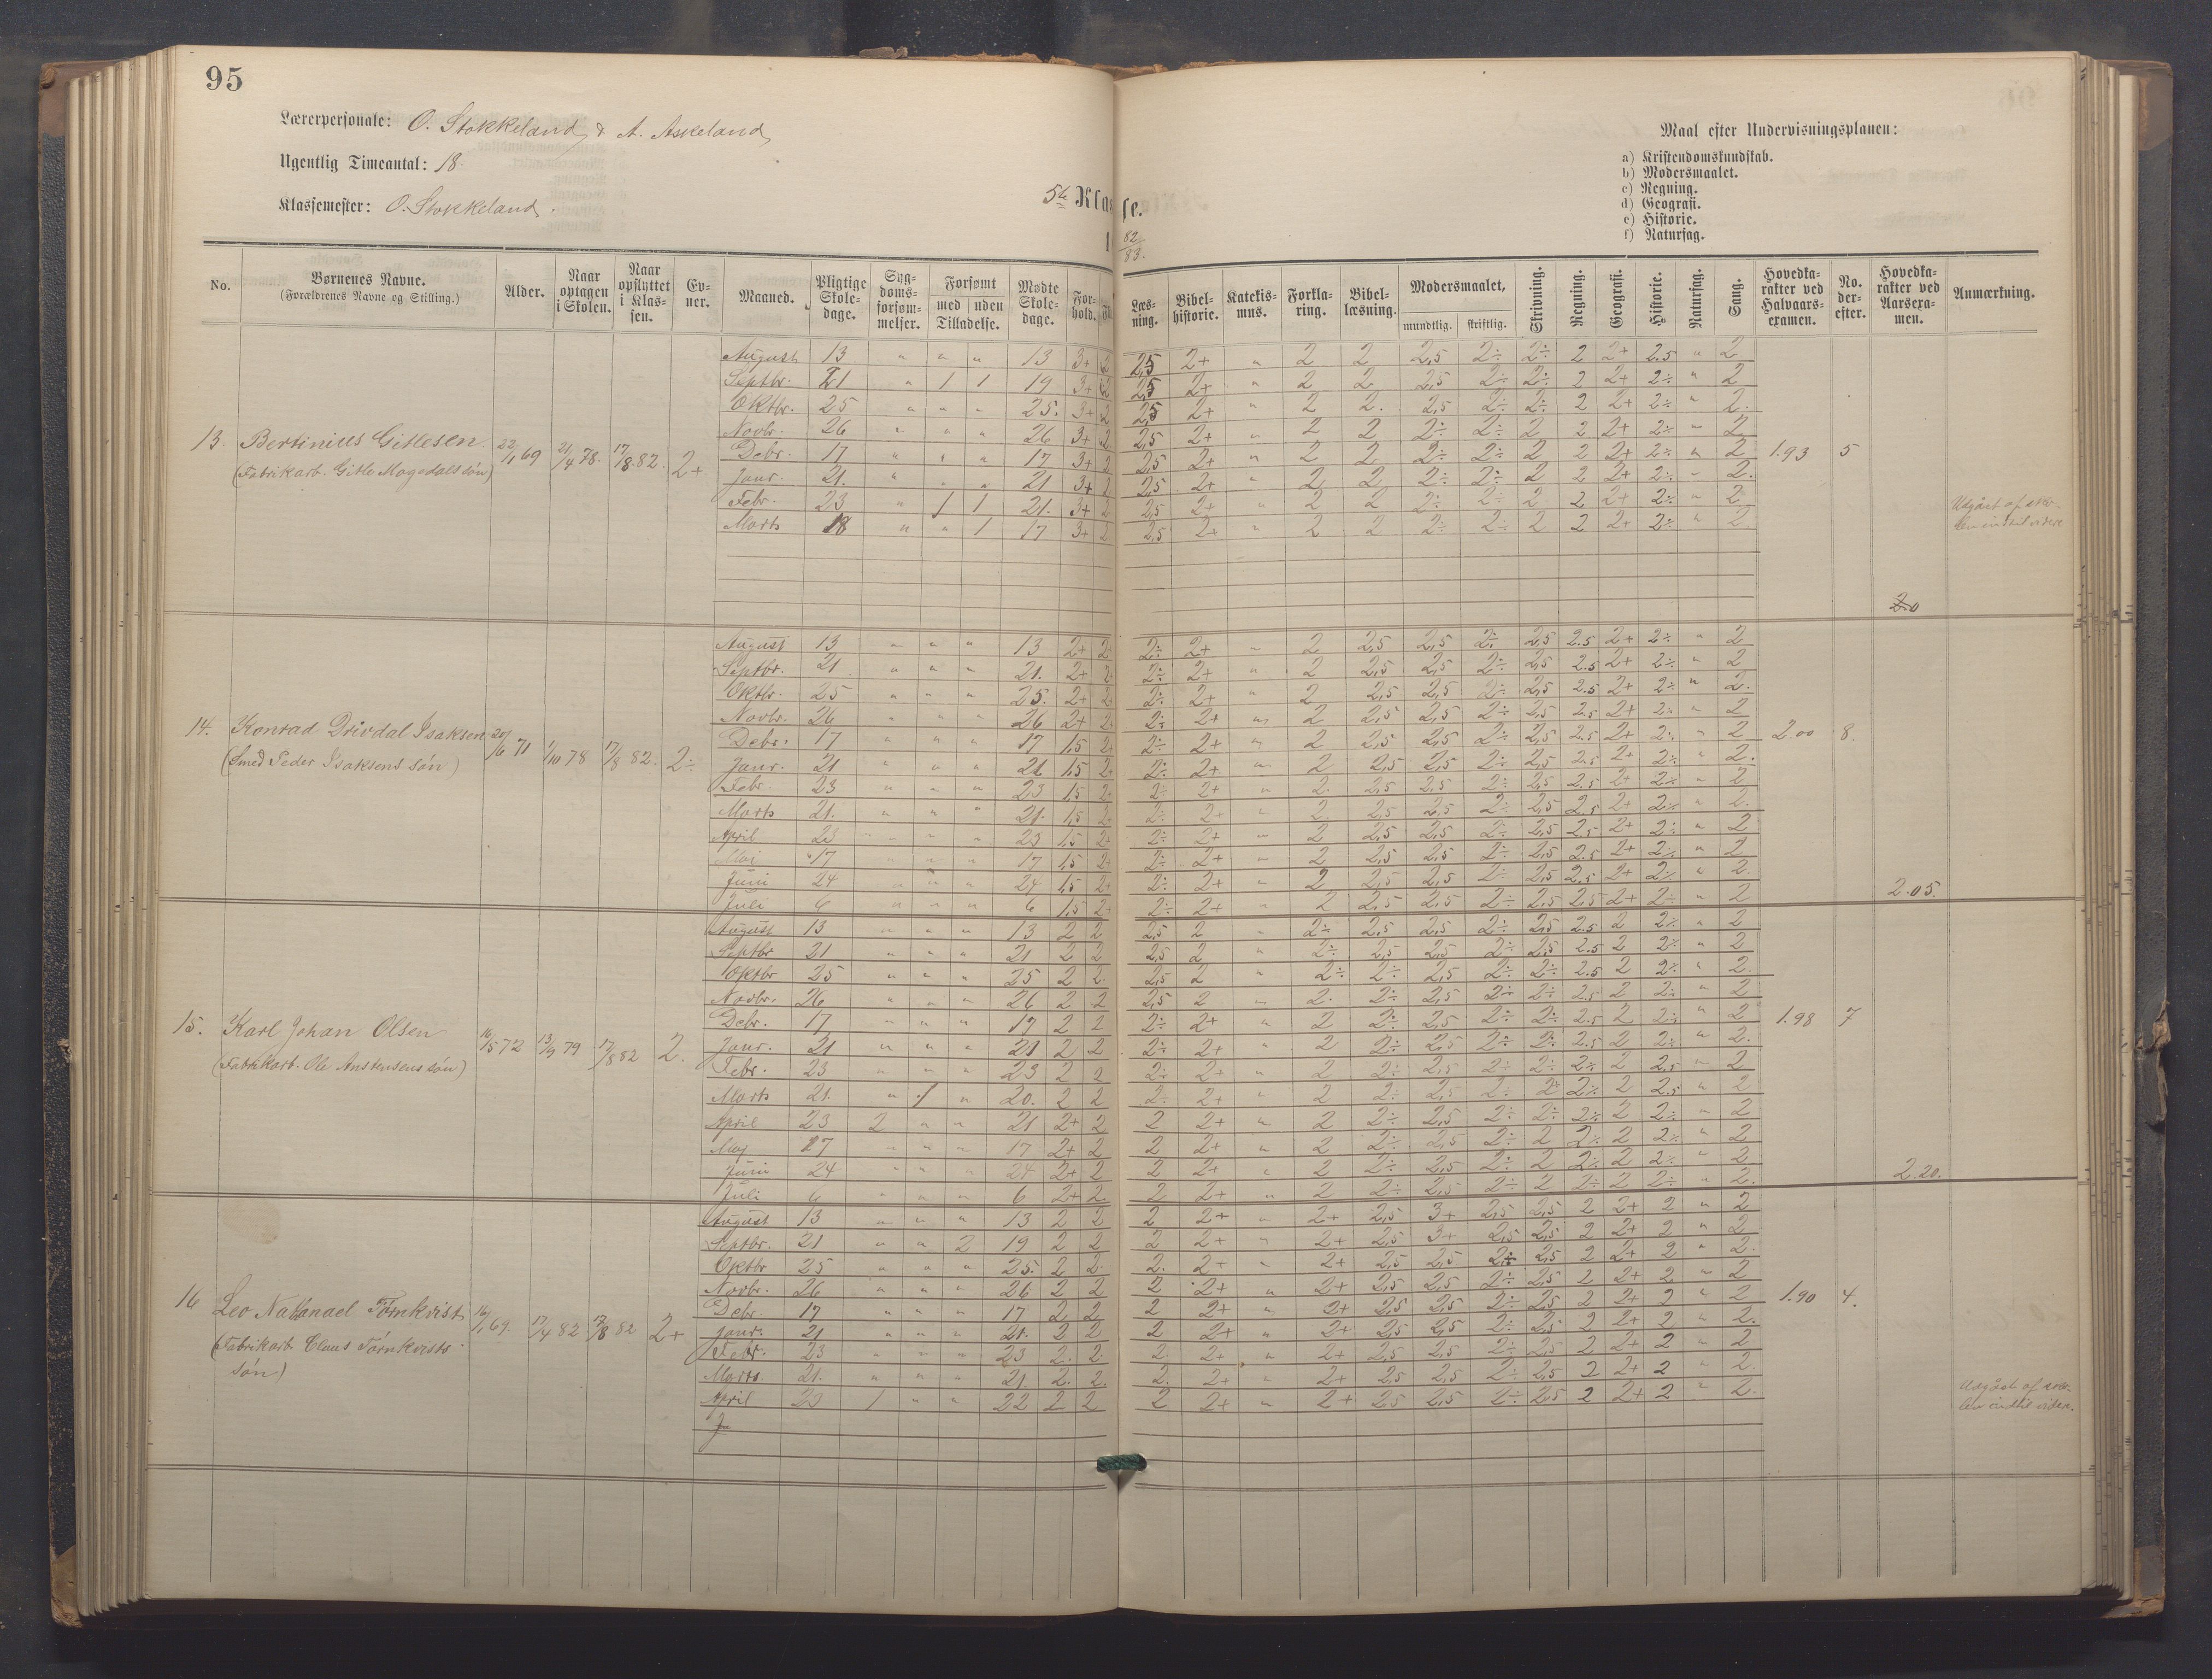 95
Lærerpersonale: O. Stokkeland & A. Askeland
Ugentlig Timeantal: 18.
Klassemester: O. Stokkeland.
5te Klasse.
82/83.
Maal efter Undervisningsplanen:
a) Kristendomskundskab.
b) Modersmaalet.
c) Regning.
d) Geografi.
e) Historie.
f) Naturfag.
No. | Børnenes Navne. (Forældrenes Navne og Stilling.) | Alder. | Naar optagen i Skolen. | Naar opflyttet i Klassen. | Evner. | Maaned. | Pligtige Skoledage. | Sygdomsforsømmelser. | Forsømt med | uden Tilladelse. | Mødte Skoledage. | Forhold. | Læsning. | Bibelhistorie. | Katekismus. | Forklaring. | Bibellæsning. | Modersmaalet, mundtlig. | skriftlig. | Skrivning. | Regning. | Geografi. | Historie. | Naturfag. | Sang. | Hovedkarakter ved Halvaarsexamen. | No. derefter. | Hovedkarakter ved Aarsexamen. | Anmærkning.
13. Bertinius Gitlesen. 22/1 69 21/4 78. 17/8 82. 2+ 1.93 5
(Fabrikarb. Gitle Magedals søn)
August 13 " " " 13 3+ 2 2,5 2+ " 2 2 2,5 2÷ 2÷ 2 2+ 2.5 " 2
Septbr. 21 " 1 1 19 3+ 2 2,5 2+ " 2 2 2,5 2÷ 2÷ 2 2+ 2÷ " 2
Oktbr. 25 " " " 25. 3+ 2 2,5 2+ " 2 2. 2,5 2÷ 2÷ 2 2+ 2÷ " 2.
Novbr. 26 " " " 26 3+ 2 2,5 2+ " 2 2 2÷ 2÷ 2 2 2+ 2÷ " 2
Debr. 17 " " " 17 3+ 2 2,5 2+ " 2 2 2÷ 2÷ 2 2 2+ 2÷ " 2
Janr. 21. " " " 21 3+ 2 2,5 2+ " 2 2 2÷ 2÷ 2 2 2+ 2÷ " 2.
Febr. 23 " 1 1 21. 3+ 2 2,5 2+ " 2 2 2÷ 2÷ 2 2 2+ 2÷ " 2
Marts 18 " " 1 17 3+ 2 2,5 2+ " 2 2 2÷ 2÷ 2 2 2+ 2÷ " 2
Udgået af skolen indtil videre
2.0
14. Konrad Drivdal Isaksen 20/6 71 1/10 78 17/8 82. 2÷ 2.00 8.
(Smed Peder Isaksens søn)
August 13 " " " 13 2+ 2+ 2÷ 2+ " 2 2,5 2,5 2÷ 2,5 2.5 2+ 2÷ " 2
Septbr. 21 " " " 21. 2+ 2+ 2÷ 2+ " 2 2,5 2,5 2÷ 2,5 2.5 2+ 2÷ " 2
Oktbr. 25 " " " 25. 2+ 2+ 2÷ 2+ " 2 2,5 2,5 2÷ 2,5 2.5 2+ 2÷ " 2.
Novbr. 26 " " " 26 2+ 2+ 2÷ 2+ " 2 2,5 2,5 2÷ 2,5 2.5 2+ 2÷ " 2
Debr. 17 " " " 17 1,5 2+ 2÷ 2+ " 2 2,5 2,5 2÷ 2,5 2.5 2+ 2÷ " 2
Janr. 21 " " " 21 1,5 2+ 2÷ 2+ " 2 2,5 2,5 2÷ 2,5 2.5 2+ 2÷ " 2.
Febr. 23 " " " 23 1,5 2+ 2÷ 2+ " 2. 2,5 2,5 2÷ 2,5 2.5 2+ 2÷ " 2
Marts 21. " " " 21. 1,5 2+ 2÷ 2+ " 2. 2,5 2,5 2÷ 2,5 2.5 2+ 2÷ " 2.
April 23 " " " 23 1,5 2+ 2÷ 2+ " 2 2,5 2,5 2÷ 2,5 2.5 2+ 2÷ " 2
Mai 17 " " " 17 1,5 2+ 2÷ 2+ " 2 2,5 2,5 2÷ 2,5 2.5 2+ 2÷ " 2
Juni 24 " " " 24 1,5 2+ 2÷ 2+ " 2 2,5 2,5 2÷ 2,5 2.5 2+ 2÷ " 2.
Juli 6 " " " 6 1,5 2+ 2÷ 2+ " 2 2,5 2,5 2÷ 2,5 2,5 2+ 2÷ " 2
2.05.
15. Karl Johan Olsen 16/5 72 13/9 79 17/8 82 2. 1.98 7
(Fabrikarb. Ole Anstensens søn)
August 13 " " " 13 2 2 2,5 2 " 2÷ 2,5 2,5 2÷ 2,5 2.5 2 2÷ " 2
Septbr 21 " " " 21 2 2 2,5 2 " 2÷ 2,5 2,5 2÷ 2,5 2.5 2 2÷ " 2
Oktbr 25 " " " 25 2 2. 2,5 2 " 2÷ 2÷ 2,5 2÷ 2÷ 2.5 2 2÷ " 2.
Novbr. 26 " " " 26 2 2 2,5 2 " 2. 2÷ 2,5 2÷ 2÷ 2.5 2 2÷ " 2
Debr. 17 " " " 17 2 2 2÷ 2+ " 2 2÷ 2,5 2÷ 2÷ 2.5 2 2÷ " 2
Janr. 21 " " " 21 2 2 2÷ 2+ " 2 2÷ 2,5 2÷ 2÷ 2.5 2 2÷ " 2.
Febr. 23 " " " 23 2 2 2÷ 2+ " 2 2÷ 2,5 2÷ 2÷ 2÷ 2 2.5 " 2
Marts 21. " 1 " 20. 2 2 2÷ 2+ " 2 2÷ 2,5 2÷ 2+ 2÷ 2 2.5 " 2
April 23 2 " " 21 2+ 2 2 2+ " 2 2÷ 2,5 2÷ 2÷ 2÷ 2 2÷ " 2
Maj 17 " " " 17 2+ 2 2 2+ " 2 2÷ 2,5 2÷ 2 2÷ 2 2÷ " 2
Juni 24 " " " 24 2+ 2 2 2+ " 2 2÷ 2,5 2÷ 2 2÷ 2 2÷ " 2
Juli 6 " " " 6 2+ 2. 2 2+ " 2 2÷ 2,5 2÷ 2 2÷ 2 2÷ " 2.
2.20.
16 Leo Nathanael Törnkvist 16/1 69. 17/4 82 17/8 82 2+ 1.90 4.
(Fabrikarb. Claus Törnkvists
søn)
August 13 " " " 13 2 2 2 2+ " 2+ 2,5 3+ 2,5 2,5 2 2+ 2 " 2
Septbr. 21 " " 2 19 2 2 2 2+ " 2+ 2,5 3+ 2,5 2,5 2 2+ 2 " 2
Oktbr 25 " " " 25. 2 2. 2. 2+ " 2+ 2,5 2,5 2÷ 2,5 2 2+ 2 " 2.
Novbr. 26 " " " 26 2 2 2 2+ " 2+ 2,5 2,5 2÷ 2,5 2 2+ 2 " 2
Debr 17 " " " 17 2 2 2 2+ " 2+ 2,5 2,5 2÷ 2,5 2 2+ 2 " 2
Janr. 21 " " " 21. 2 2 2 2+ " 2+ 2,5 2,5 2÷ 2,5 2 2+ 2 " 2.
Febr. 23 " " " 23 2. 2. 2. 2+ " 2+ 2,5 2,5 2÷ 2,5 2 2+ 2 " 2
Marts. 21. " " " 21. 2. 2. 2. 2+ " 2+ 2,5 2,5 2÷ 2,5 2 2+ 2 " 2.
April 23 1 " " 22 2 2 2 2+ " 2+ 2,5 2,5 2÷ 2,5 2 2+ 2 " 2.
Udgået af skolen indtil videre.